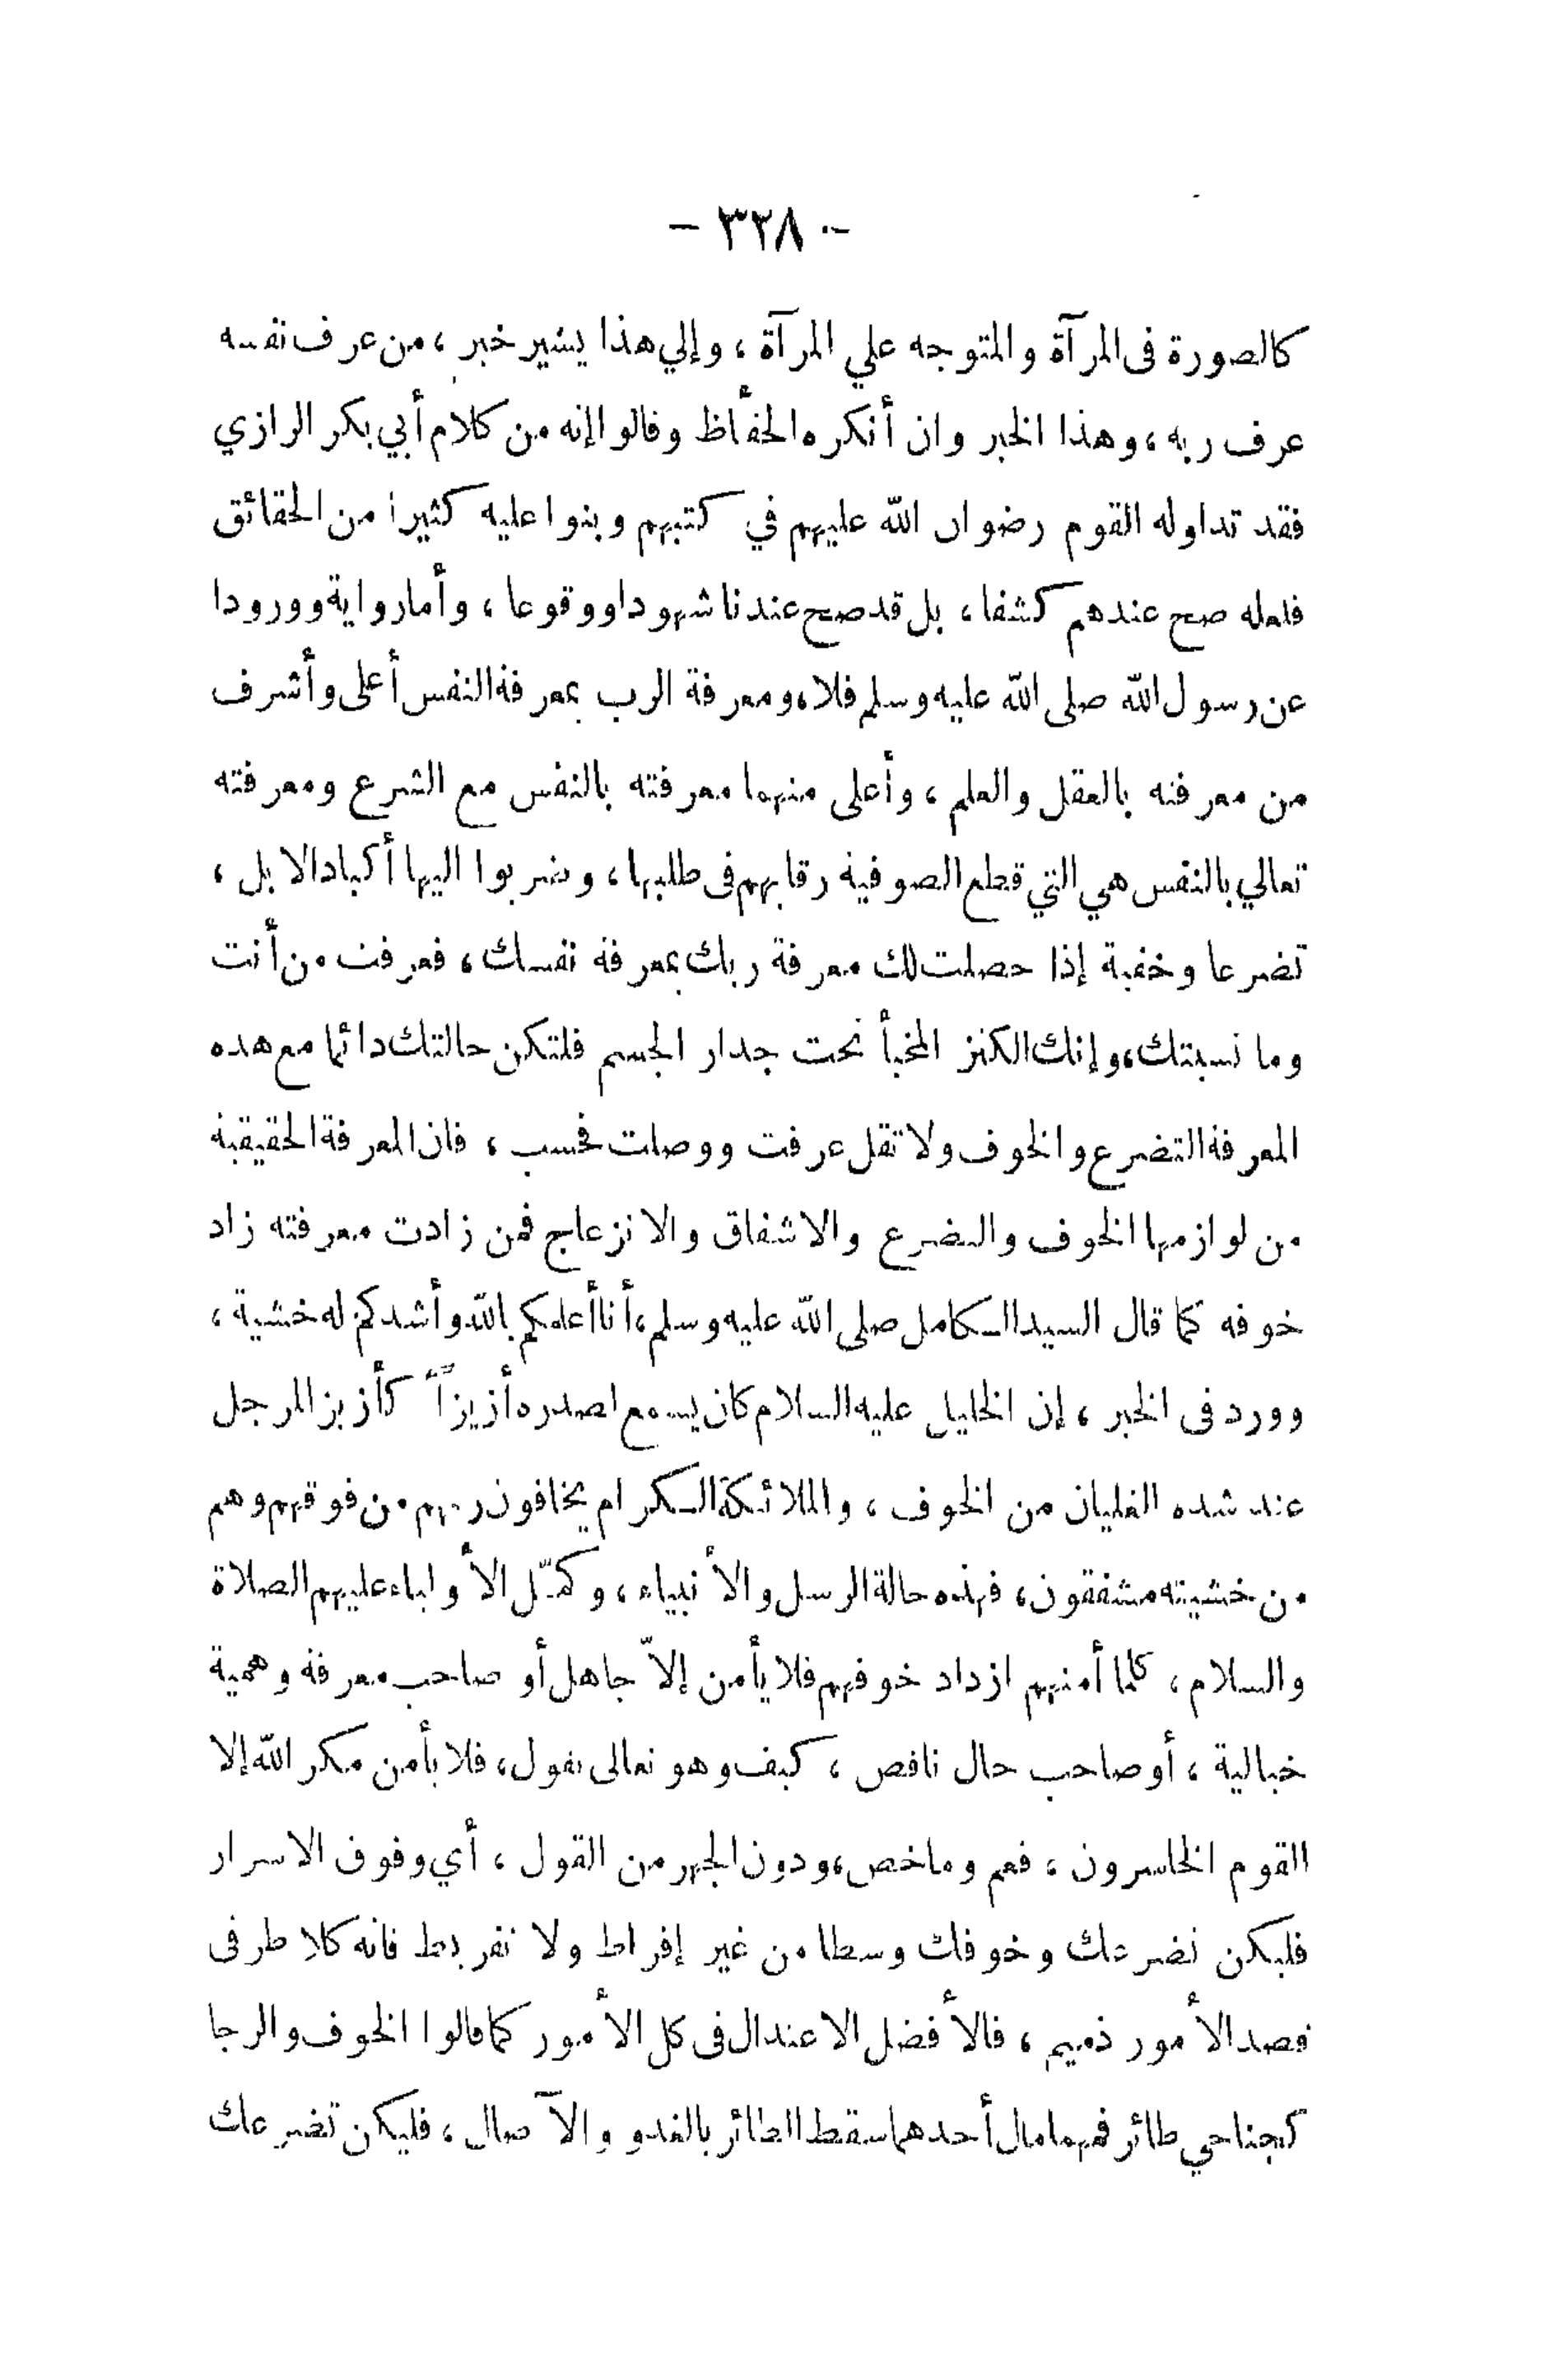 - ٣٢٨ -
كالصورة فى المرآة والمتوجه علي المرآة ، وإلي هذا يشير خبر ، من عرف نفسه
عرف ربه ، وهذا الخبر وان أنكره الحفّاظ وقالوا إنه من كلام أبي بكر الرازي
فقد تداوله القوم رضوان الله عليهم في كتبهم وبنوا عليه كثيرا من الحقائق
فلعله صح عندهم كشفا ، بل قد صح عندنا شهودا ووقوعا ، وأما رواية وورودا
عن رسول الله صلى الله عليه وسلم فلا ، ومعرفة الرب بمعرفة النفس أعلى وأشرف
من معرفته بالعقل والعلم ، وأعلى منهما معرفته بالنفس مع الشرع ومعرفته
تعالي بالنفس هي التي قطع الصوفية رقابهم فى طلبها ، وضربوا اليها أكباد الابل ،
تضرعا وخفية إذا حصلت لك معرفة ربك بمعرفة نفسك ، فعرفت من أنت
وما نسبتك ، وإنك الكنز المخبأ تحت جدار الجسم فلتكن حالتك دائما مع هده
المعرفة التضرع والخوف ولا تقل عرفت ووصلت فحسب ، فان المعرفة الحقيقية
من لوازمها الخوف والتضرع والاشفاق والانزعاج فمن زادت معرفته زاد
خوفه كما قال السيد الكامل صلى الله عليه وسلم ، أنا أعلمكم بالله وأشدكم له خشية ،
وورد فى الخبر ، إن الخليل عليه السلام كان يسمع لصدره أزيزاً كأزيز المرجل
عند شده الغليان من الخوف ، والملائكة الكرام يخافون ربهم من فوقهم وهم
من خشيته مشفقون ، فهذه حالة الرسل والأنبياء ، وكمّل الأولياء عليهم الصلاة
والسلام ، كلما أمنهم ازداد خوفهم فلا يأمن إلاّ جاهل أو صاحب معرفة وهمية
خيالية ، أو صاحب حال ناقص ، كيف وهو تعالى يقول ، فلا يأمن مكر الله إلا
القوم الخاسرون ، فعم وما خص ، ودون الجهر من القول ، أي وفوق الاسرار
فليكن تضرعك وخوفك وسطا من غير إفراط ولا تفريط فانه كلا طرفى
قصد الأمور ذميم ، فالأفضل الاعتدال فى كل الأمور كما قالوا الخوف والرجا
كجناحي طائر فمهما مال أحدهما سقط الطائر بالغدو والآصال ، فليكن تضرعك